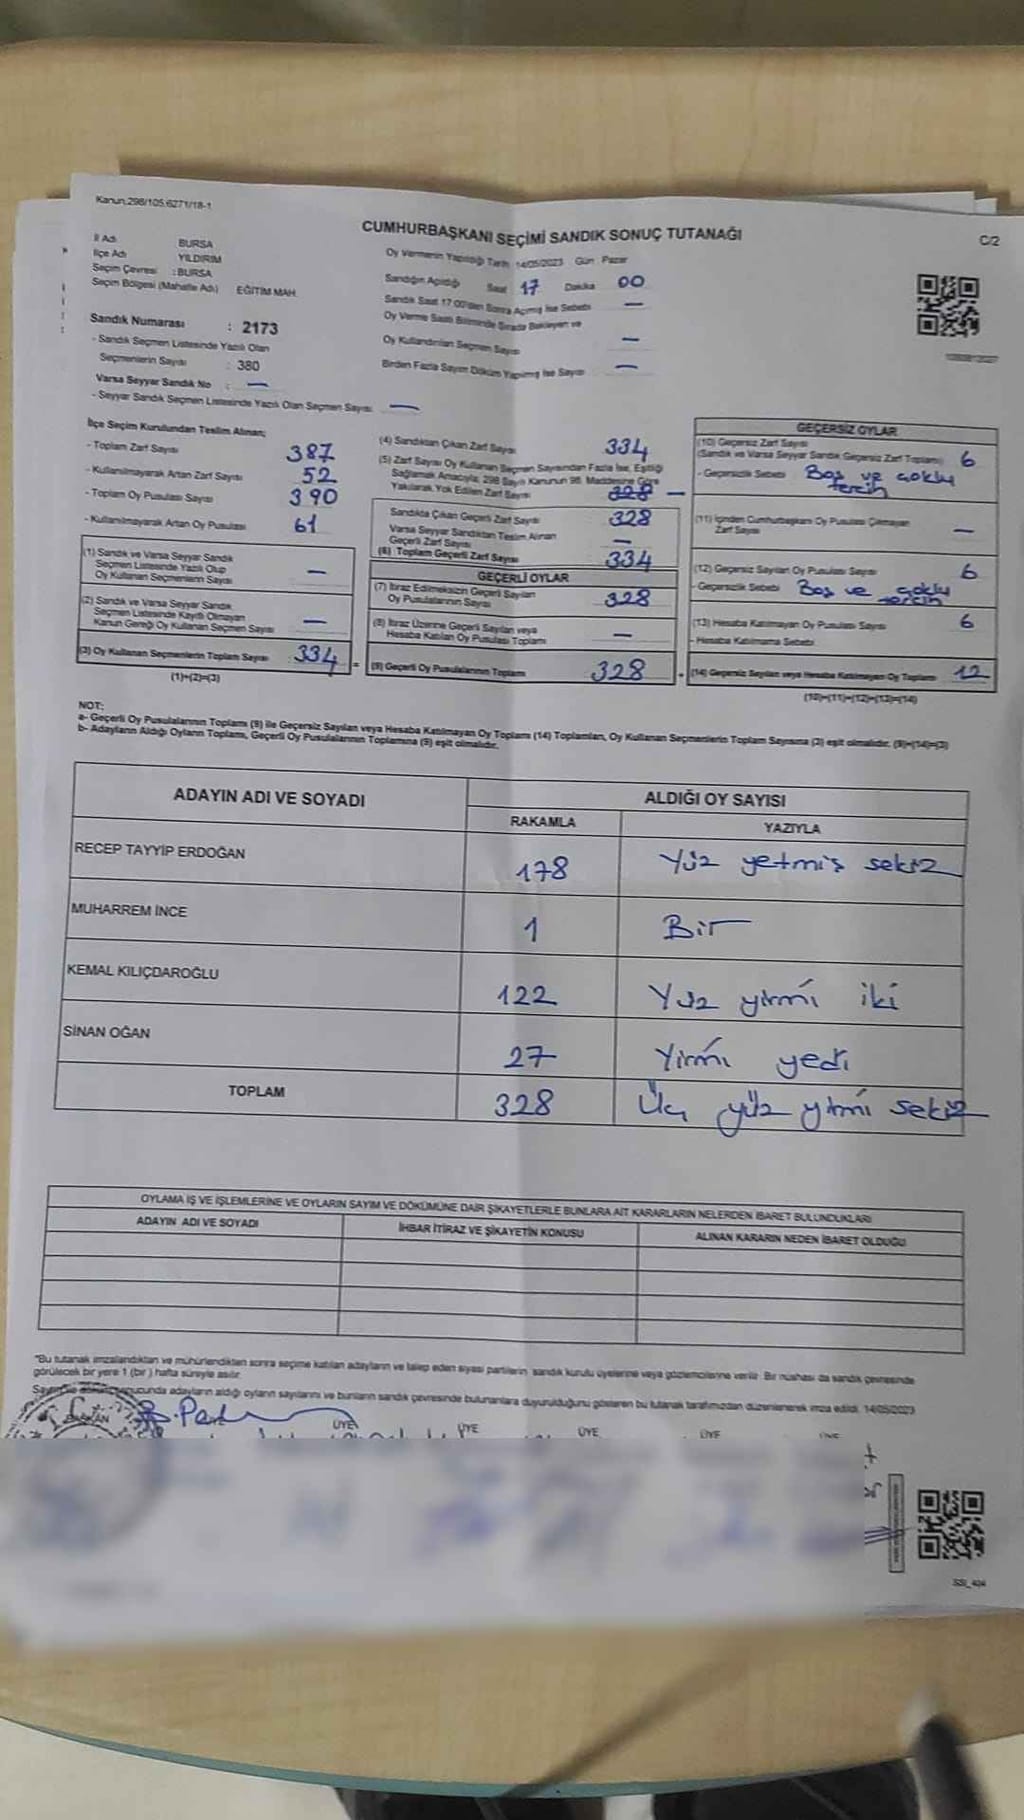 Kanun;298/105.6271/18-1
CUMHURBAŞKANI SEÇİMİ SANDIK SONUÇ TUTANAĞI
C/2
İl Adı BURSA
İlçe Adı YILDIRIM
Seçim Çevresi : BURSA
Seçim Bölgesi (Mahalle Adı) EĞİTİM MAH.
Sandık Numarası : 2173
- Sandık Seçmen Listesinde Yazılı Olan
Seçmenlerin Sayısı : 380
Varsa Seyyar Sandık No : —
- Seyyar Sandık Seçmen Listesinde Yazılı Olan Seçmen Sayısı —
Oy Vermenin Yapıldığı Tarih 14/05/2023 Gün : Pazar
Sandığın Açıldığı Saat 17 Dakika 00
Sandık Saat 17:00'den Sonra Açmış İse Sebebi —
Oy Verme Saati Bitiminde Sırada Bekleyen ve
Oy Kullandırılan Seçmen Sayısı —
Birden Fazla Sayım Döküm Yapılmış İse Sayısı —
İlçe Seçim Kurulundan Teslim Alınan;
- Toplam Zarf Sayısı 387
- Kullanılmayarak Artan Zarf Sayısı 52
- Toplam Oy Pusulası Sayısı 390
- Kullanılmayarak Artan Oy Pusulası 61
(1) Sandık ve Varsa Seyyar Sandık
Seçmen Listesinde Yazılı Olup
Oy Kullanan Seçmenlerin Sayısı —
(2) Sandık ve Varsa Seyyar Sandık
Seçmen Listesinde Kayıtlı Olmayan
Kanun Gereği Oy Kullanan Seçmen Sayısı —
(3) Oy Kullanan Seçmenlerin Toplam Sayısı 334
(1)+(2)=(3)
(4) Sandıktan Çıkan Zarf Sayısı 334
(5) Zarf Sayısı Oy Kullanan Seçmen Sayısından Fazla İse, Eşitliği
Sağlamak Amacıyla; 298 Sayılı Kanunun 98. Maddesine Göre
Yakılarak Yok Edilen Zarf Sayısı 328 —
Sandıkta Çıkan Geçerli Zarf Sayısı 328
Varsa Seyyar Sandıktan Teslim Alınan
Geçerli Zarf Sayısı —
(6) Toplam Geçerli Zarf Sayısı 334
GEÇERLİ OYLAR
(7) İtiraz Edilmeksizin Geçerli Sayılan
Oy Pusulalarının Sayısı 328
(8) İtiraz Üzerine Geçerli Sayılan veya
Hesaba Katılan Oy Pusulası Toplamı —
= (9) Geçerli Oy Pusulalarının Toplamı 328
GEÇERSİZ OYLAR
(10) Geçersiz Zarf Sayısı
(Sandık ve Varsa Seyyar Sandık Geçersiz Zarf Toplamı) 6
- Geçersizlik Sebebi Boş ve çoklu
tercih
(11) İçinden Cumhurbaşkanı Oy Pusulası Çıkmayan
Zarf Sayısı —
(12) Geçersiz Sayılan Oy Pusulası Sayısı 6
- Geçersizlik Sebebi Boş ve çoklu
tercih
(13) Hesaba Katılmayan Oy Pusulası Sayısı 6
- Hesaba Katılmama Sebebi
+ (14) Geçersiz Sayılan veya Hesaba Katılmayan Oy Toplamı 12
(10)+(11)+(12)+(13)=(14)
NOT:
a- Geçerli Oy Pusulalarının Toplamı (9) ile Geçersiz Sayılan veya Hesaba Katılmayan Oy Toplamı (14) Toplamları, Oy Kullanan Seçmenlerin Toplam Sayısına (3) eşit olmalıdır. (9)+(14)=(3)
b- Adayların Aldığı Oyların Toplamı, Geçerli Oy Pusulalarının Toplamına (9) eşit olmalıdır.
ADAYIN ADI VE SOYADI ALDIĞI OY SAYISI
RAKAMLA YAZIYLA
RECEP TAYYİP ERDOĞAN 178 Yüz yetmiş sekiz
MUHARREM İNCE 1 Bir
KEMAL KILIÇDAROĞLU 122 Yüz yirmi iki
SİNAN OĞAN 27 Yirmi yedi
TOPLAM 328 Üç yüz yirmi sekiz
OYLAMA İŞ VE İŞLEMLERİNE VE OYLARIN SAYIM VE DÖKÜMÜNE DAİR ŞİKAYETLERLE BUNLARA AİT KARARLARIN NELERDEN İBARET BULUNDUKLARI
ADAYIN ADI VE SOYADI İHBAR İTİRAZ VE ŞİKAYETİN KONUSU ALINAN KARARIN NEDEN İBARET OLDUĞU
"Bu tutanak imzalandıktan ve mühürlendikten sonra seçime katılan adayların ve talep eden siyasi partilerin sandık kurulu üyelerine veya gözlemcilerine verilir. Bir nüshası da sandık çevresinde
görülecek bir yere 1 (bir) hafta süreyle asılır.
sonucunda adayların aldığı oyların sayılarını ve bunların sandık çevresinde bulunanlara duyurulduğunu gösteren bu tutanak tarafımızdan düzenlenerek imza edildi. 14/05/2023
BAŞKAN ÜYE ÜYE ÜYE ÜYE
SSI_404